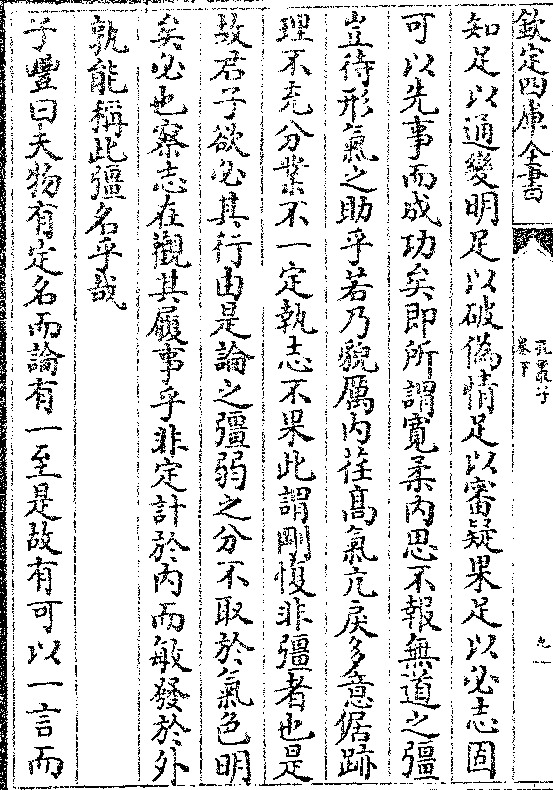 欽定四庫全書
孔叢子
卷下
知足以通變明足以破偽情足以審疑果足以必志固
可以先事而成功矣即所謂寬柔內思不報無道之彊
豈待形氣之助乎若乃貌厲內荏高氣亢戾多意倨跡
理不充分業不一定執志不果此謂剛愎非彊者也是
故君子欲必其行由是論之彊弱之分不取於氣色明
矣必也察志在觀其履事乎非定計於內而敏發於外
孰能稱此彊名乎哉
子豐曰夫物有定名而論有一至是故有可以一言而